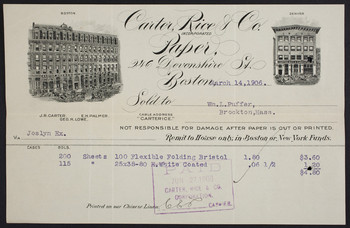 BOSTON
NEW YORK
Carter, Rice & Co.
INCORPORATED
Paper,
246 Devonshire St.
Boston, March 14, 1906.
Sold to Wm. L. Puffer,
Brockton, Mass.
J.R. CARTER. E.H. PALMER.
GEO. H. LOWE.
CABLE ADDRESS
"CARTERICE."
NOT RESPONSIBLE FOR DAMAGE AFTER PAPER IS CUT OR PRINTED.
Via Joslyn Ex.
Remit to House only; in Boston or New York Funds.
CASES SOLD
200 Sheets 100 Flexible Folding Bristol 1.80 $3.60
115 " 25x38-80 M. White Coated .06 1/2
$4.80
PAID
CARTER, RICE & CO.
CORPORATION
CASHIER.
Printed on our Chinese Linen.